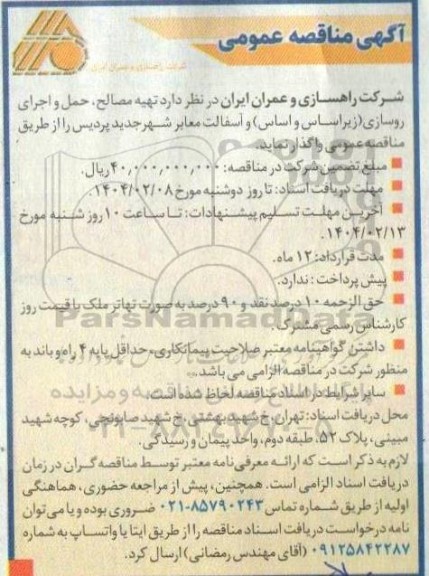 آگهی مناقصه عمومی
شرکت راهسازی و عمران ایران
شرکت راهسازی و عمران ایران در نظر دارد تهیه مصالح، حمل و اجرای
روسازی (زیراساس و اساس) و آسفالت معابر شهر جدید پردیس را از طریق
مناقصه عمومی واگذار نماید.
■ مبلغ تضمین شرکت در مناقصه: ۴۰,۰۰۰,۰۰۰,۰۰۰ ریال.
■ مهلت دریافت اسناد: تا روز دوشنبه مورخ ۱۴۰۴/۰۲/۰۸.
■ آخرین مهلت تسلیم پیشنهادات: تا ساعت ۱۰ روز شنبه مورخ
۱۴۰۴/۰۲/۱۳.
■ مدت قرارداد: ۱۲ ماه.
■ پیش پرداخت: ندارد.
■ حق الزحمه ۱۰ درصد نقد و ۹۰ درصد به صورت تهاتر ملک با قیمت روز
کارشناس رسمی مشترک.
■ داشتن گواهینامه معتبر صلاحیت پیمانکاری، حداقل پایه ۴ راه و باند به
منظور شرکت در مناقصه الزامی می باشد.
■ سایر شرایط در اسناد مناقصه لحاظ شده است.
محل دریافت اسناد: تهران، خ شهید بهشتی، خ شهید صابونچی، کوچه شهید
مبینی، پلاک ۵۲، طبقه دوم، واحد پیمان و رسیدگی.
لازم به ذکر است که ارائه معرفی نامه معتبر توسط مناقصه گران در زمان
دریافت اسناد الزامی است. همچنین، پیش از مراجعه حضوری، هماهنگی
اولیه از طریق شماره تماس ۸۵۷۹۰۲۴۳-۰۲۱ ضروری بوده و یا می توان
نامه درخواست دریافت اسناد مناقصه را از طریق ایتا یا واتساپ به شماره
۰۹۱۲۵۸۴۲۲۸۷ (آقای مهندس رمضانی) ارسال کرد.
ParsNamadData